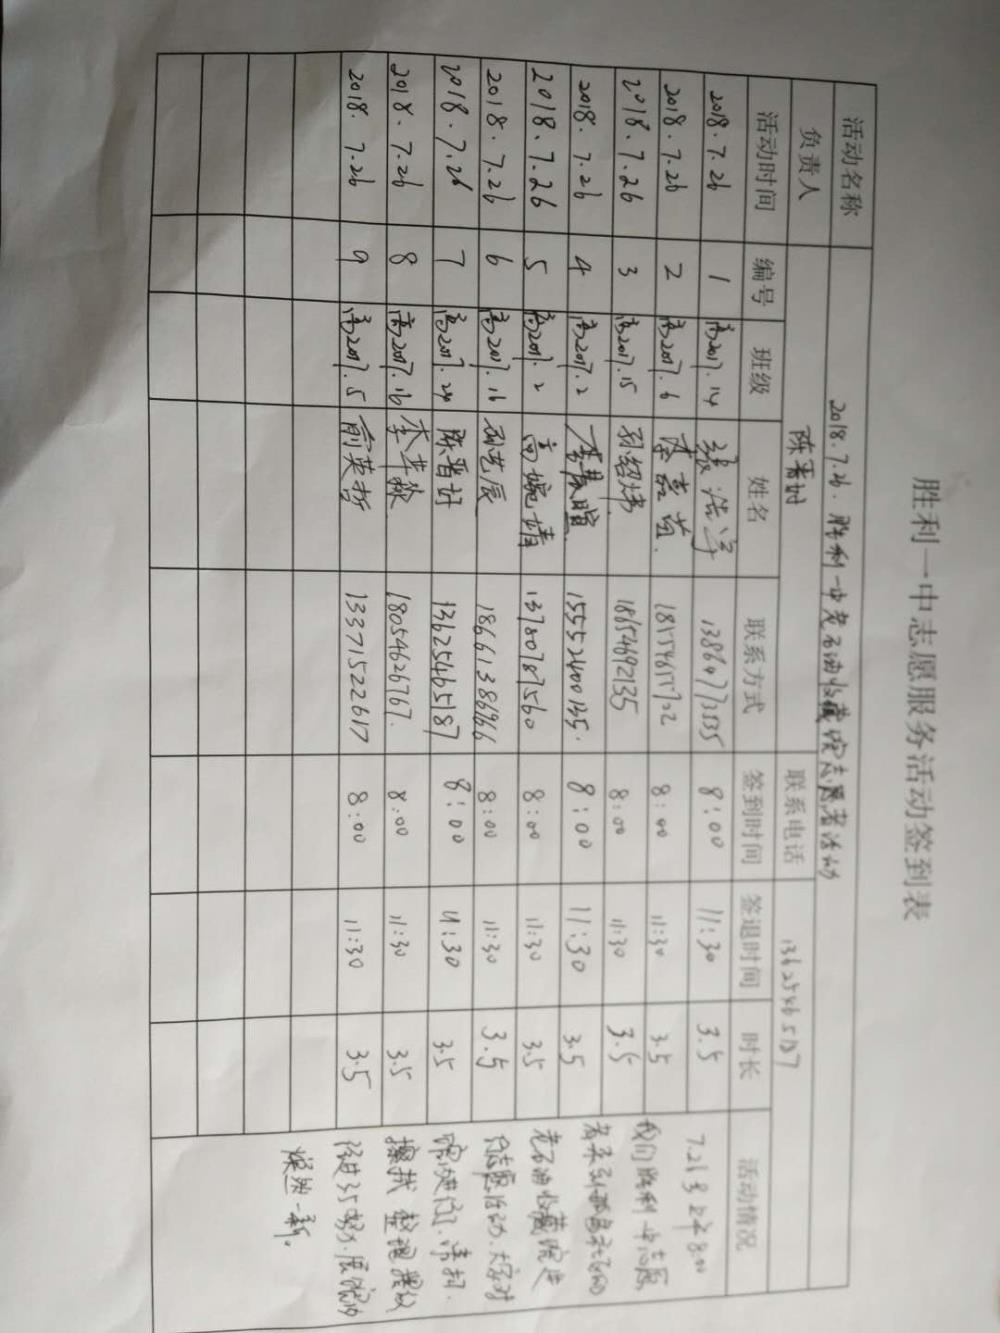 胜利一中志愿服务活动签到表
活动名称 2018.7.26.胜利一中老石油收藏馆志愿者活动
负责人 陈晋时 联系电话 13625465187
活动时间 编号 班级 姓名 联系方式 签到时间 签退时间 时长 活动情况
2018.7.26 1 高2017.14 张浩宇 8:00 11:30 3.5
2018.7.26 2 高2017.6 李嘉 8:00 11:30 3.5
2018.7.26 3 高2017.15 孙绍炜 18654692135 8:00 11:30 3.5
2018.7.26 4 高2017.2 李 15552400135. 8:00 11:30 3.5
2018.7.26 5 高2017.2 高婉靖 13780787560 8:00 11:30 3.5
2018.7.26 6 高2017.16 艺辰 18661386966 8:00 11:30 3.5
2018.7.26 7 高2017.24 陈晋时 13625465187 8:00 11:30 3.5
2018.7.26 8 高2017.16 李 18054626767. 8:00 11:30 3.5
2018.7.26 9 高2017.5 俞英哲 13371522617 8:00 11:30 3.5
7.26早上8:00
我们胜利一中志愿
者来到
老石油收藏院进
行志愿活动.大家对
院进行了清扫.
擦拭 整理
经过3.5努力.
焕然一新。